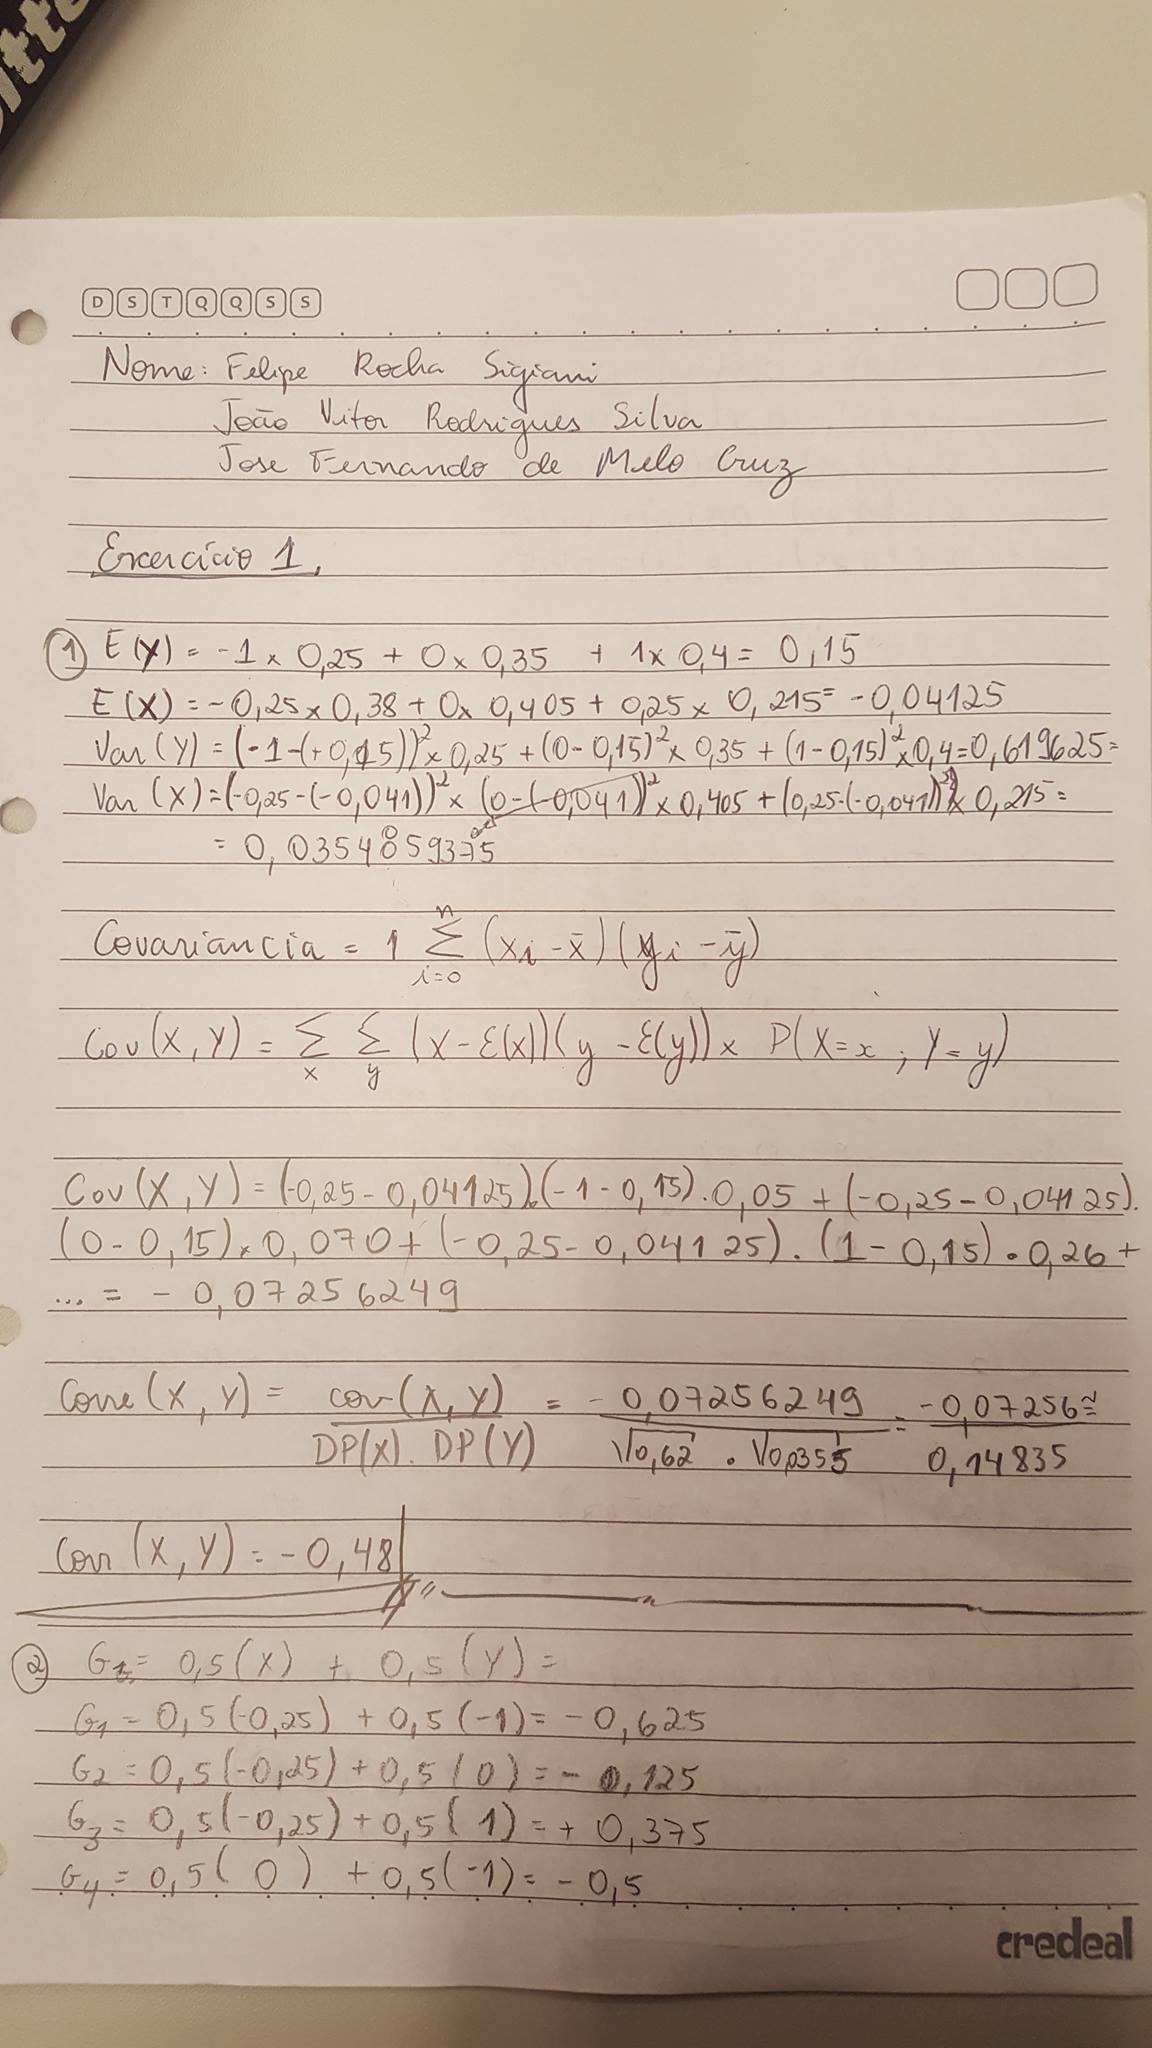 D S T Q Q S S
Nome: Felipe Rocha Sigiani
João Vitor Rodrigues Silva
Jose Fernando de Melo Cruz
Exercício 1.
① E(Y) = -1 × 0,25 + 0 × 0,35 + 1 × 0,4 = 0,15
E(X) = -0,25 × 0,38 + 0 × 0,405 + 0,25 × 0,215 = -0,04125
Var(Y) = (-1-(+0,15))² × 0,25 + (0-0,15)² × 0,35 + (1-0,15)² × 0,4 = 0,619625 =
Var(X) = (-0,25-(-0,041))² × (0-(-0,041))² × 0,405 + (0,25-(-0,041))² × 0,215 =
= 0,0354859375
Covariancia = 1 n Σ i=0 (xi - x̄)(yi - ȳ)
Cov(X,Y) = Σx Σy (x - E(x))(y - E(y)) × P(X=x ; Y=y)
Cov(X,Y) = (-0,25-0,04125).(-1-0,15).0,05 + (-0,25-0,04125).
(0-0,15)×0,070 + (-0,25-0,04125).(1-0,15).0,26 +
... = -0,07256249
Corre(X,Y) = cov(X,Y) / DP(X).DP(Y) = -0,07256249 / √0,62 . √0,0355 = -0,07256 / 0,14835 ≅
Corr(X,Y) = -0,48
② G1 = 0,5(X) + 0,5(Y) =
G1 = 0,5(-0,25) + 0,5(-1) = -0,625
G2 = 0,5(-0,25) + 0,5(0) = -0,125
G3 = 0,5(-0,25) + 0,5(1) = +0,375
G4 = 0,5(0) + 0,5(-1) = -0,5
credeal